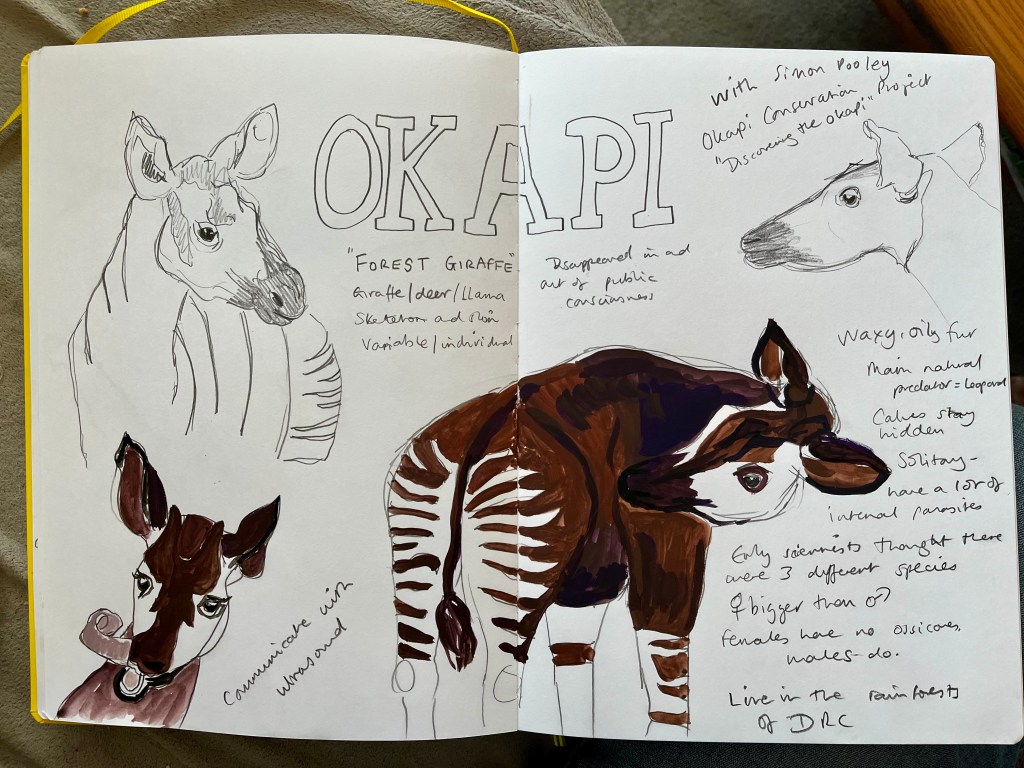 OKAPI
"FOREST GIRAFFE"
Giraffe/deer/Llama
Skeleton and skin
Variable/individual
Communicate with
ultrasound
with Simon Pooley
Okapi Conservation Project
"Discovering the okapi"
Disappeared in and
out of public
consciousness
Waxy, oily fur
Main natural
predator = Leopard
Calves stay
hidden
Solitary -
have a lot of
internal parasites
Early scientists thought there
were 3 different species
♀ bigger than ♂
Females have no ossicones,
males - do.
Live in the rainforests
of DRC